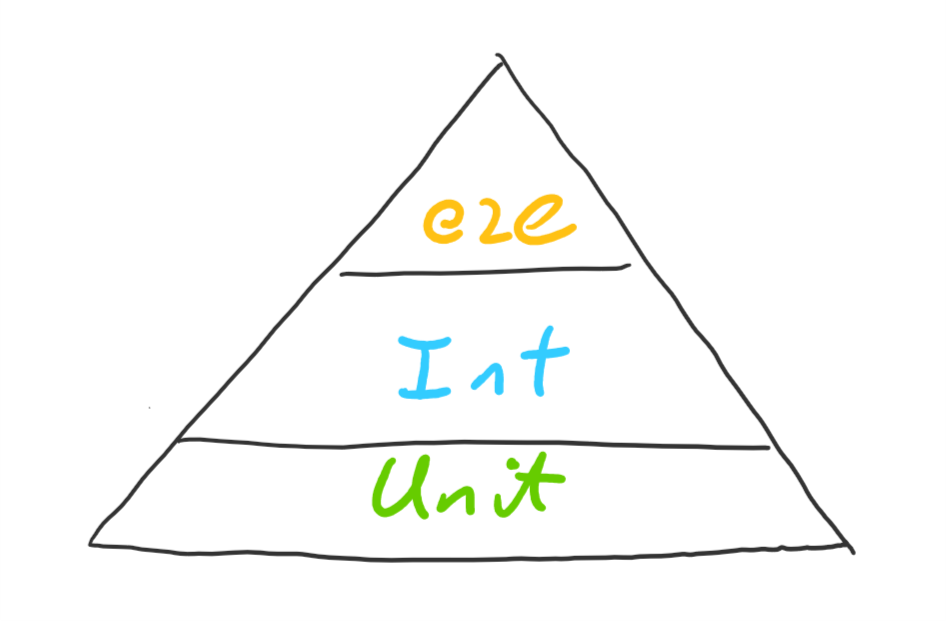 e2e
Int
Unit